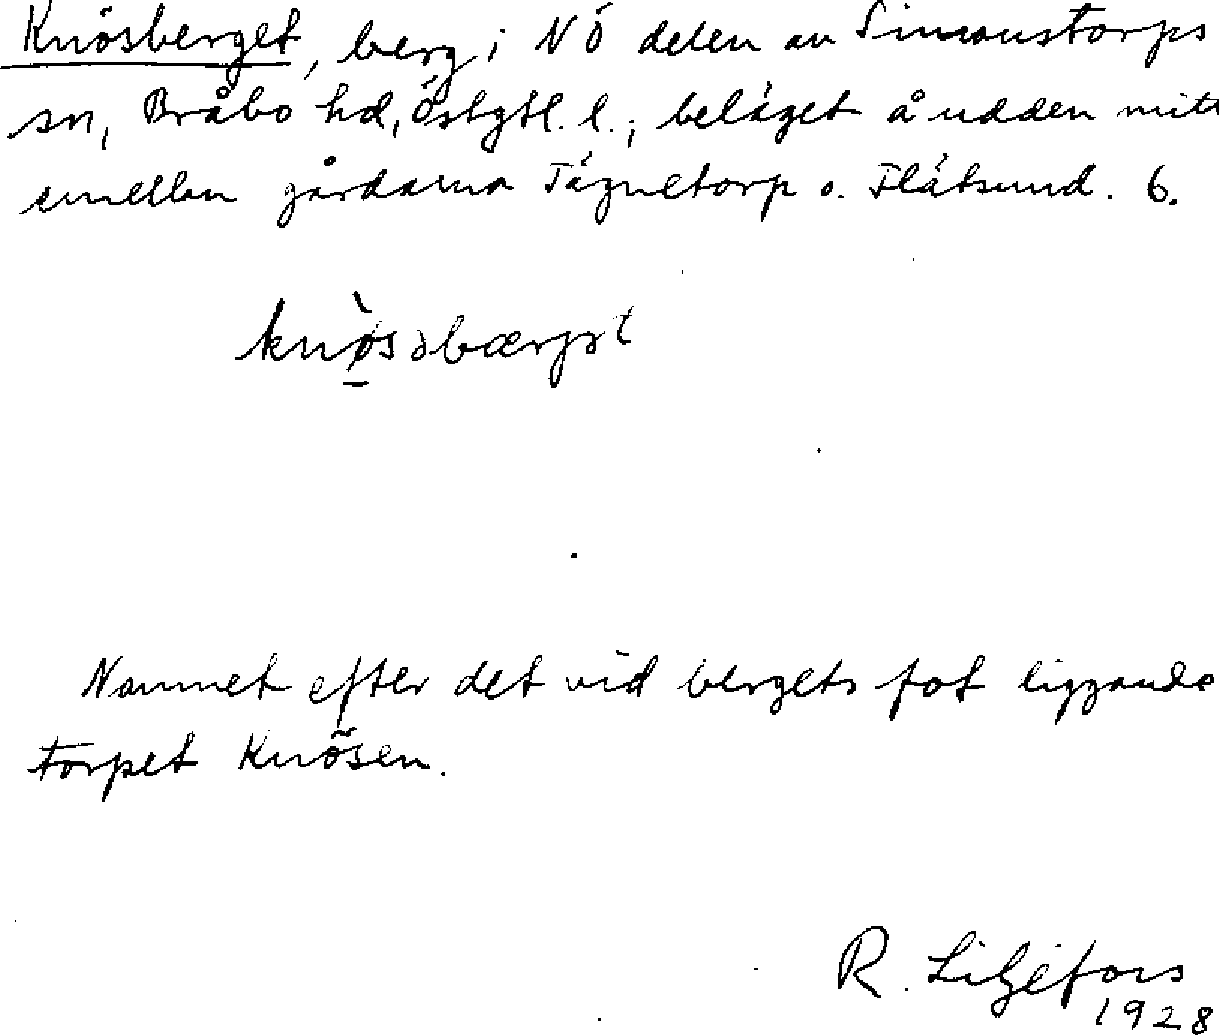 Knösberget, berg i NÖ delen av Simonstorps
sn, Bråbo hd, Östgtl. l.; beläget å udden mitt
emellan gårdarna Tägnetorp o. Flätsund. 6.
knø̀sɔbærjət
Namnet efter det vid bergets fot liggande
torpet Knösen.
R. Liljefors
1928